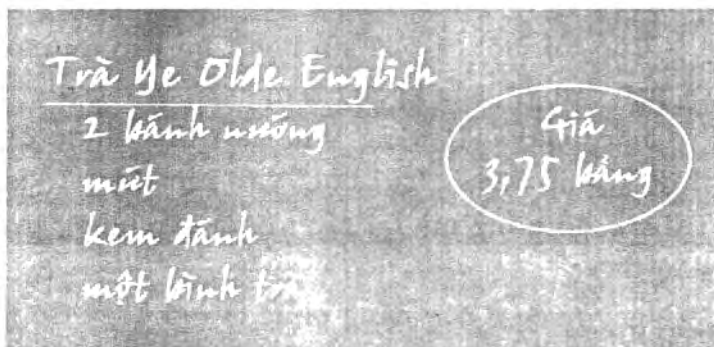 Trà Ye Olde English
2 bánh nướng
mứt
kem đánh
một bình trà
Giá
3,75 bảng